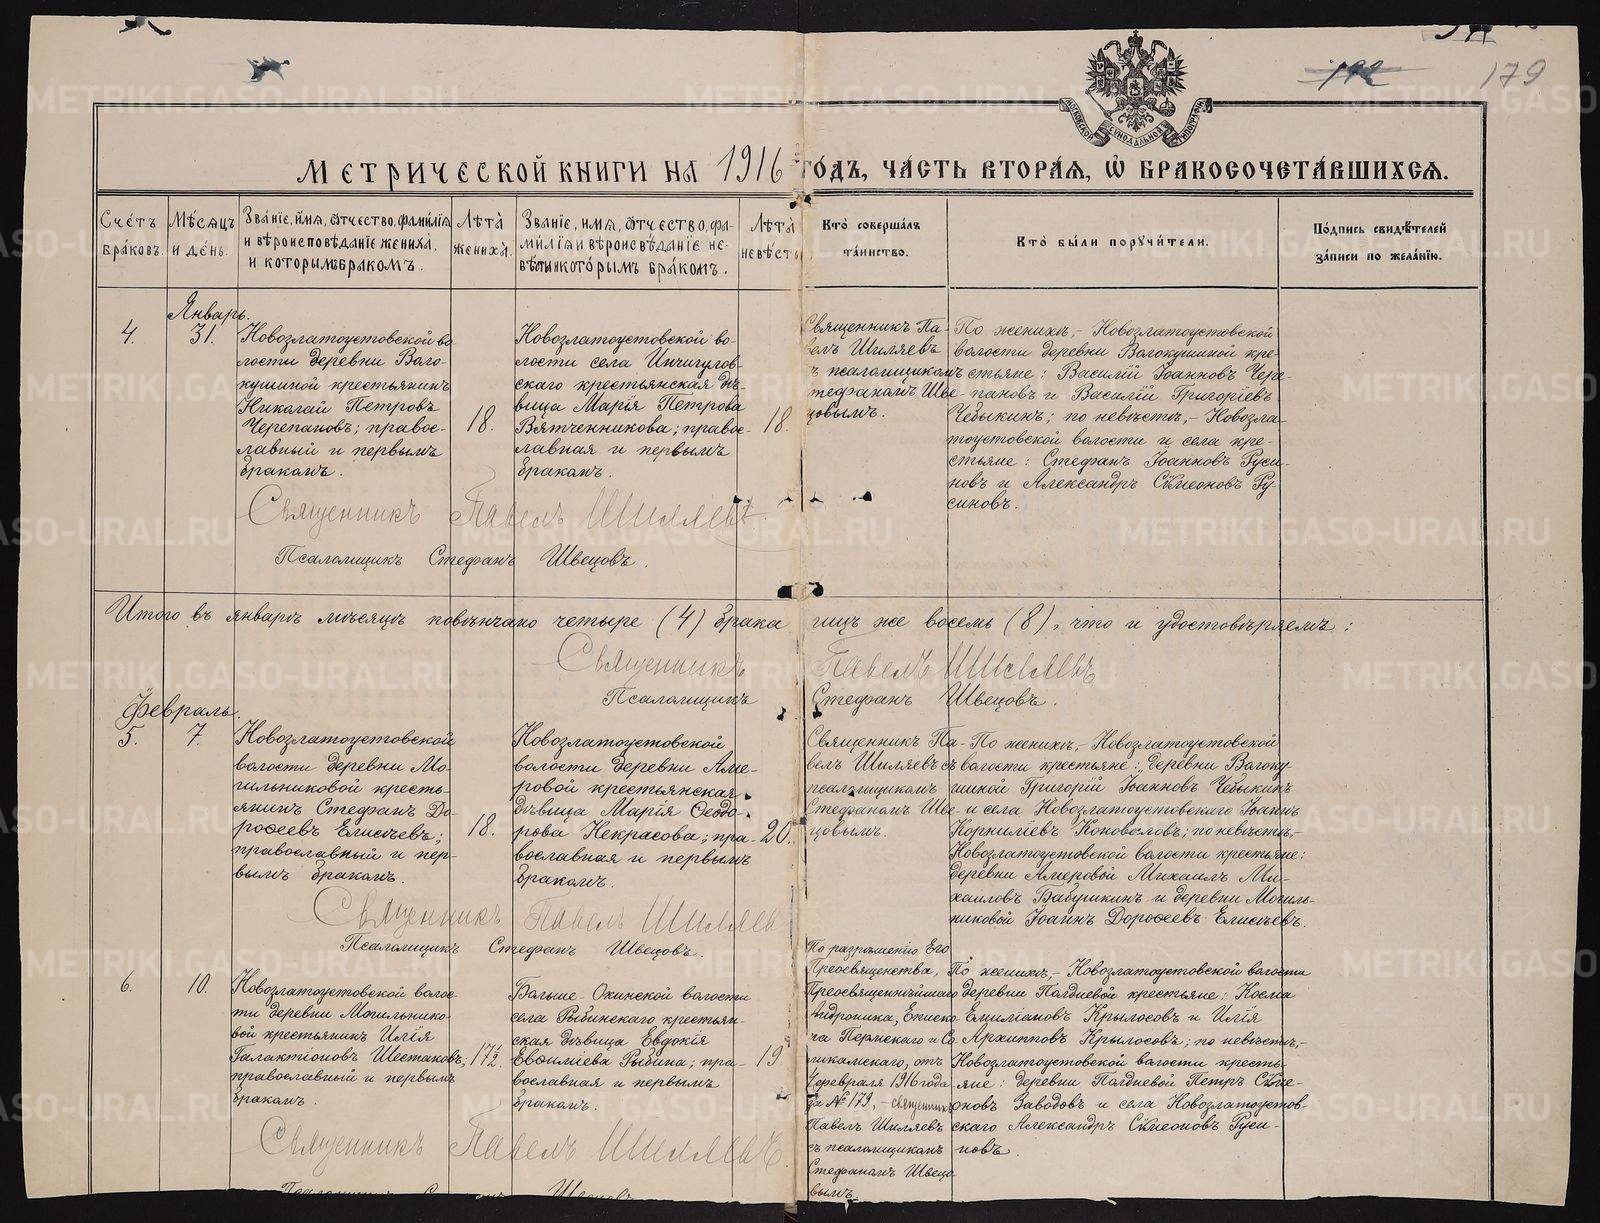 179
МОСКОВСКОЙ СѴНОДАЛЬНОЙ ТИПОГРАФІИ
МЕТРИЧЕСКОЙ КНИГИ НА 1916 ГОДЪ, ЧАСТЬ ВТОРАЯ, Ѡ БРАКОСОЧЕТАВШИХСЯ.
Счетъ браковъ.
Мѣсяцъ и день.
Званіе, имя, отчество, фамилія
и вѣроисповѣданіе жениха,
и которымъ бракомъ.
Лѣта
жениха.
Званіе, имя, отчество, фа-
милія и вѣроисповѣданіе не-
вѣсты и которымъ бракомъ.
Лѣта
невѣсты
Кто совершалъ
таинство.
Кто были поручители.
Подпись свидѣтелей
записи по желанію.
Январь.
4.
31.
Новозлатоустовской во-
лости деревни Воло-
кушиной крестьянинъ
Николай Петровъ
Черепановъ; правос-
лавный и первымъ
бракомъ.
18.
Новозлатоустовской во-
лости села Ичигулов-
скаго крестьянская дѣ-
вица Марія Петрова
Вятченникова; правос-
лавная и первымъ
бракомъ.
18.
Священникъ Па-
велъ Шиляевъ
съ псаломщикомъ
Стефаномъ Шве
цовымъ.
По женихѣ,- Новозлатоустовской
волости деревни Волокушиной кре-
стьяне: Василій Іоанновъ Чере-
пановъ и Василій Григоріевъ
Чебыкинъ; по невѣстѣ,- Новозла-
тоустовской волости и села кре-
стьяне: Стефанъ Іоанновъ Руси-
новъ и Александръ Сѵмеоновъ Ру-
синовъ.
Священникъ Павелъ Шиляевъ
Псаломщикъ Стефанъ Швецовъ.
Итого въ январѣ мѣсяцѣ повѣнчано четыре (4) брака лицъ же восемь (8), что и удостовѣряемъ:
Священникъ Павелъ Шиляевъ
Псаломщикъ Стефанъ Швецовъ.
Февраль.
5.
7.
Новозлатоустовской
волости деревни Мо-
гильниковой кресть-
янинъ Стефанъ До-
роѳеевъ Елисѣевъ;
православный и пер-
вымъ бракомъ.
18.
Новозлатоустовской
волости деревни Аме-
ровой крестьянская
дѣвица Марія Ѳеодо-
рова Некрасова; пра-
вославная и первымъ
бракомъ.
20.
Священникъ Па-
велъ Шиляевъ съ
псаломщикомъ
Стефаномъ Шве
цовымъ.
По женихѣ,- Новозлатоустовской
волости крестьяне: деревни Волоку
шиной Григорій Іоанновъ Чебыкинъ
и села Новозлатоустовскаго Іоаннъ
Корниліевъ Коноваловъ; по невѣстѣ,-
Новозлатоустовской волости крестьяне:
деревни Амеровой Михаилъ Ми-
хаиловъ Бабушкинъ и деревни Могиль-
никовой Іоаннъ Дороѳеевъ Елисѣевъ.
Священникъ Павелъ Шиляев
Псаломщикъ Стефанъ Швецовъ.
6.
10.
Новозлатоустовской волос
ти деревни Могильнико-
вой крестьянинъ Илія
Галактіоновъ Шестаковъ;
православный и первымъ
бракомъ.
17½.
Больше-Окинской волости
села Рыбинскаго крестьян-
ская дѣвица Евдокія
Евѳиміева Рыбина; пра-
вославная и первымъ
бракомъ.
19
По разрѣшенію Его
Преосвященства,
Преосвященнѣйшаго
Андроника, Еписко
па Пермскаго и Со
ликамскаго, отъ
4 февраля 1916 года
за № 179,- священникъ
Павелъ Шиляевъ
съ псаломщикомъ
Стефаномъ Швецо
вымъ.
По женихѣ,- Новозлатоустовской волости
деревни Полдневой крестьяне: Косма
Емиліановъ Крылосовъ и Илія
Архипповъ Крылосовъ; по невѣстѣ,-
Новозлатоустовской волости кресть-
яне: деревни Полдневой Петръ Сѵме-
оновъ Заводовъ и села Новозлатоустов-
скаго Александръ Сѵмеоновъ Руси-
новъ.
Священникъ Павелъ Шиляевъ.
METRIKI.GASO-URAL.RU